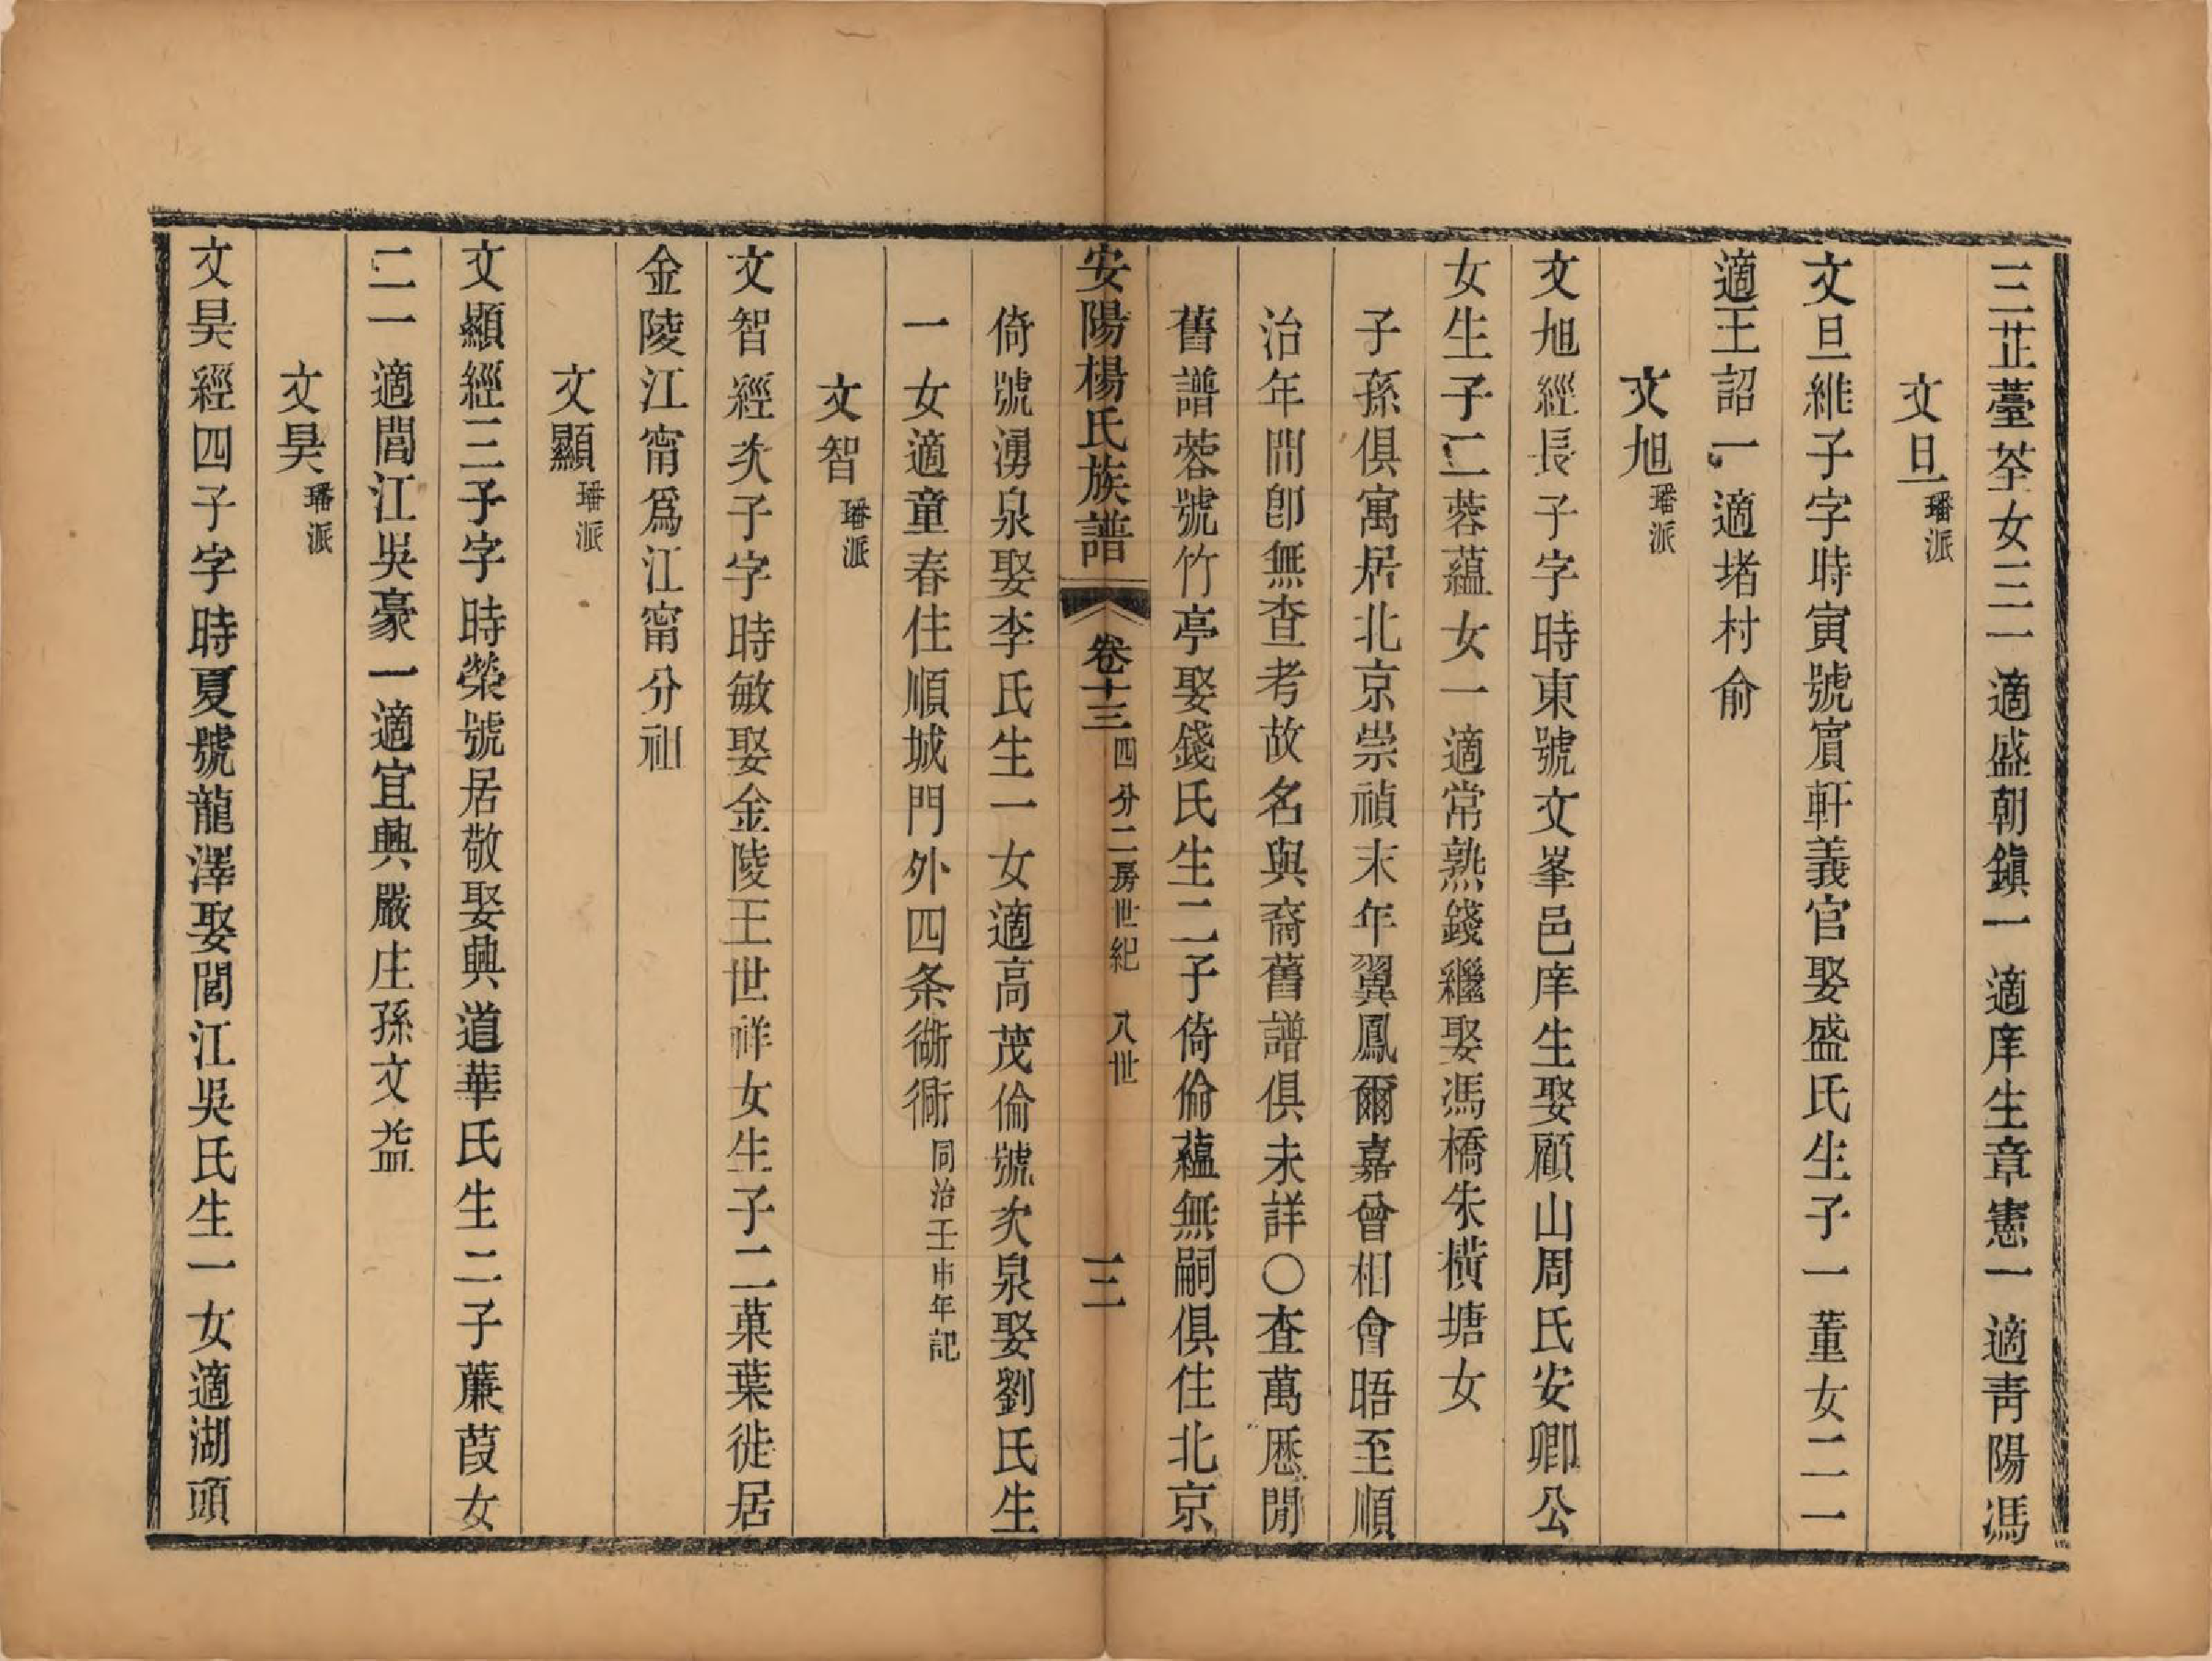 三芷薹荃女三一適盛朝鎮一適庠生章憲一適靑陽馮
文旦璠派
文旦維子字時寅號賔軒義官娶盛氏生子一董女二一
適王詔一適堵村俞
文旭璠派
文旭經長子字時東號文峯邑庠生娶顧山周氏安卿公
女生子二蓉蘊女一適常熟錢繼娶馮橋朱橫塘女
子孫俱寓居北京崇禎末年翼鳳爾嘉曾相會晤至順
治年間卽無查考故名與裔舊譜俱未詳〇查萬厯閒
舊譜蓉號竹亭娶錢氏生二子倚倫蘊無嗣俱住北京
安陽楊氏族譜 卷十三 四分二房世紀 八世 三
倚號湧泉娶李氏生一女適高茂倫號次泉娶劉氏生
一女適童春住順城門外四条衚衕同治壬申年記
文智璠派
文智經次子字時敏娶金陵王世祥女生子二菓葉徙居
金陵江甯爲江甯分祖
文顯璠派
文顯經三子字時榮號居敬娶興道華氏生二子薕葭女
二一適閭江吳豪一適宜興嚴庄孫文益
文昊璠派
文昊經四子字時夏號龍澤娶閭江吳氏生一女適湖頭